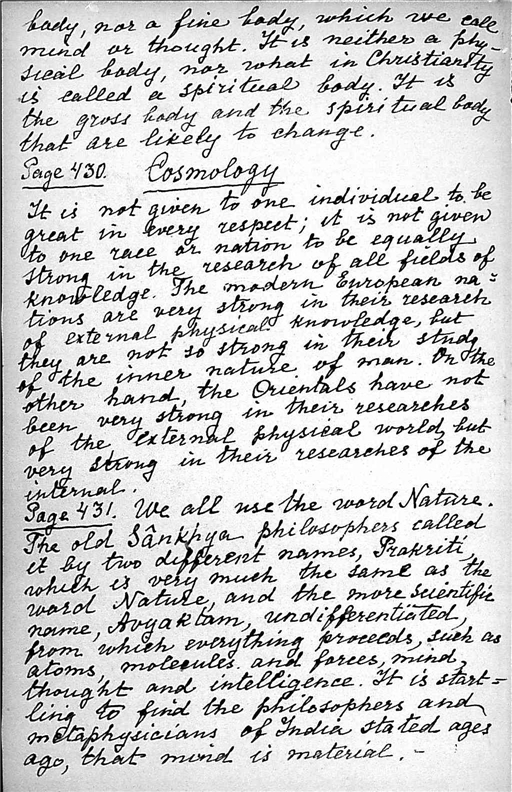 body, nor a fine body, which we call
mind or thought. It is neither a phy-
sical body, nor what in Christianity
is called a spiritual body. It is
the gross body and the spiritual body
that are likely to change.
Page 430. Cosmology
It is not given to one individual to be
great in every respect; it is not given
to one race or nation to be equally
strong in the research of all fields of
knowledge. The modern European na=
tions are very strong in their research
of external physical knowledge, but
they are not so strong in their study
of the inner nature of man. On the
other hand, the Orientals have not
been very strong in their researches
of the external physical world, but
very strong in their researches of the
internal.
Page 431. We all use the word Nature.
The old Sânkhya philosophers called
it by two different names, Prakriti,
which is very much the same as the
word Nature, and the more scientific
name, Avyaktam, undifferentiated,
from which everything proceeds, such as
atoms, molecules and forces, mind,
thought and intelligence. It is start=
ling to find the philosophers and
metaphysicians of India stated ages
ago, that mind is material. -